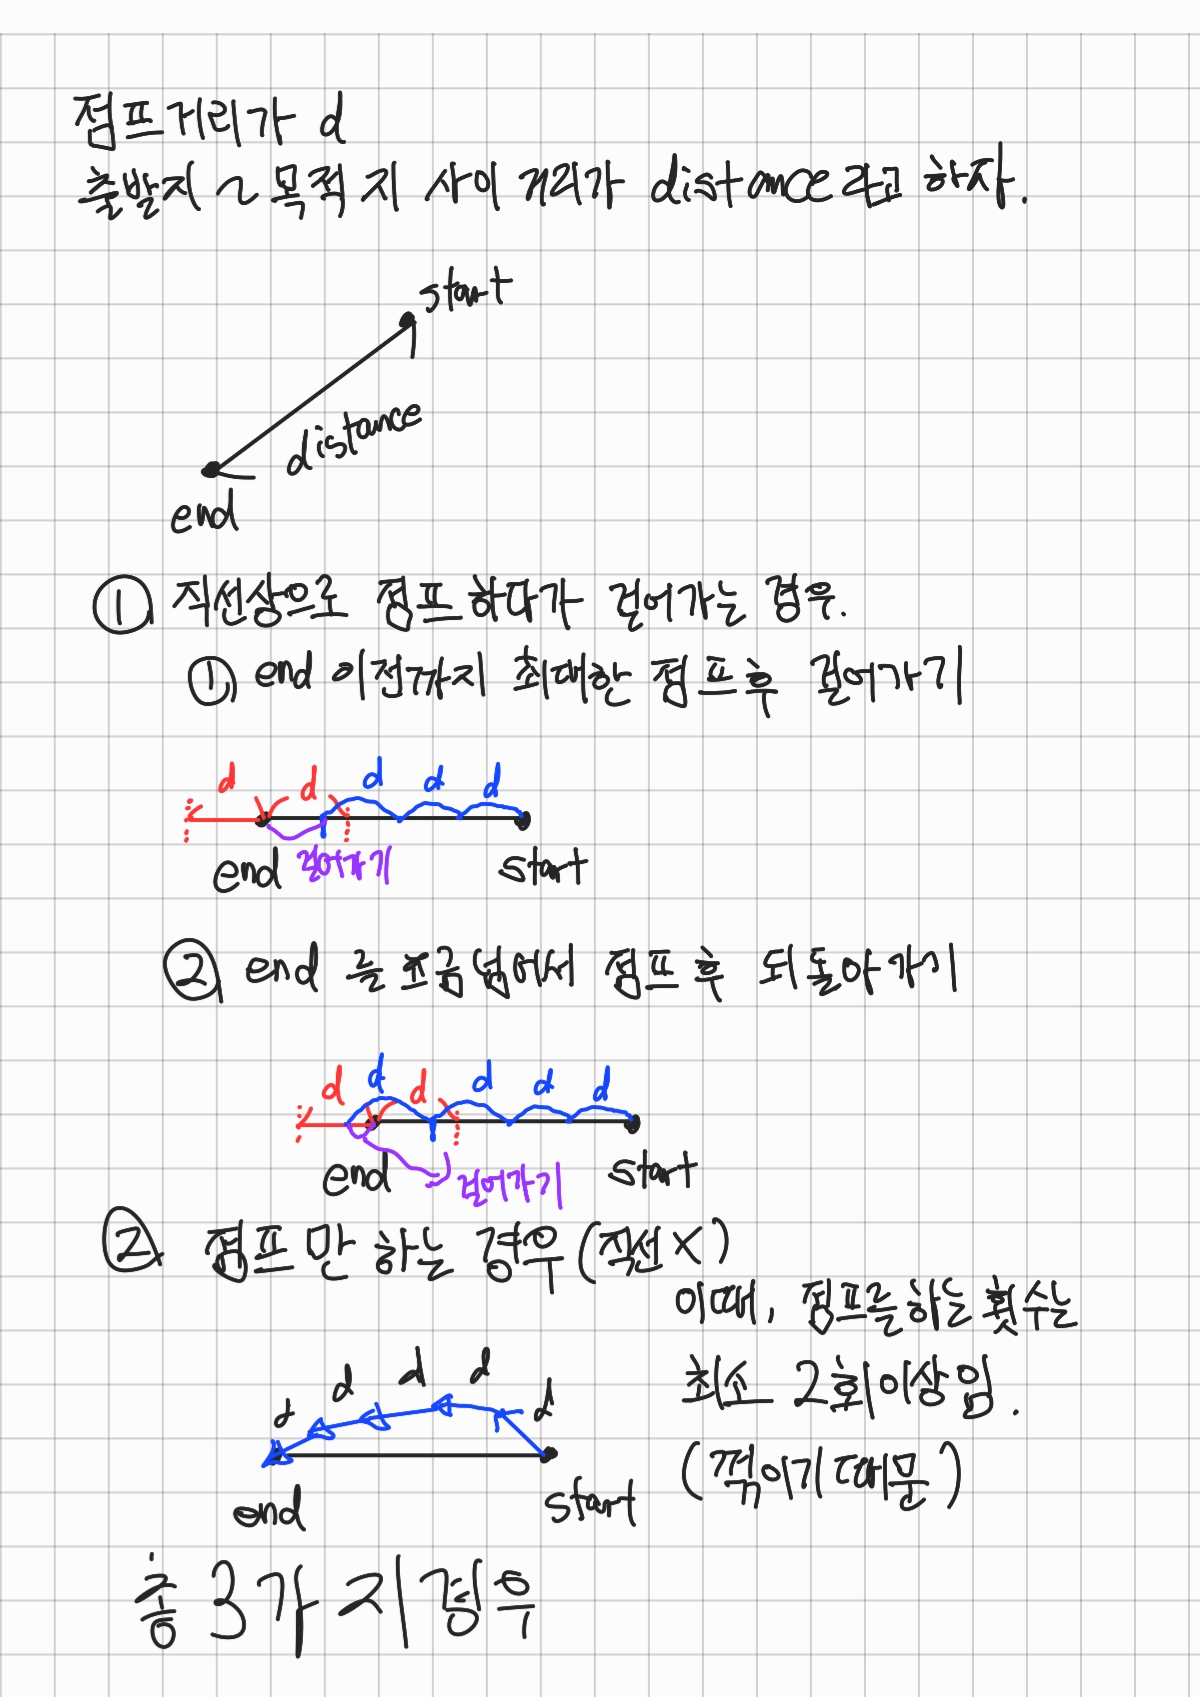 점프거리가 d
출발지 ~ 목적지 사이 거리가 distance라고 하자.
start
distance
end
① 직선상으로 점프하다가 걸어가는 경우.
① end 이전까지 최대한 점프후 걸어가기
d d d d d
end 걸어가기 start
② end 를 조금넘어서 점프 후 되돌아가기
d d d d d d
end 걸어가기 start
② 점프만 하는 경우 (직선X)
이때, 점프를 하는 횟수는
최소 2회이상임.
(꺾이기 때문)
d d d d d
end start
총 3가지경우